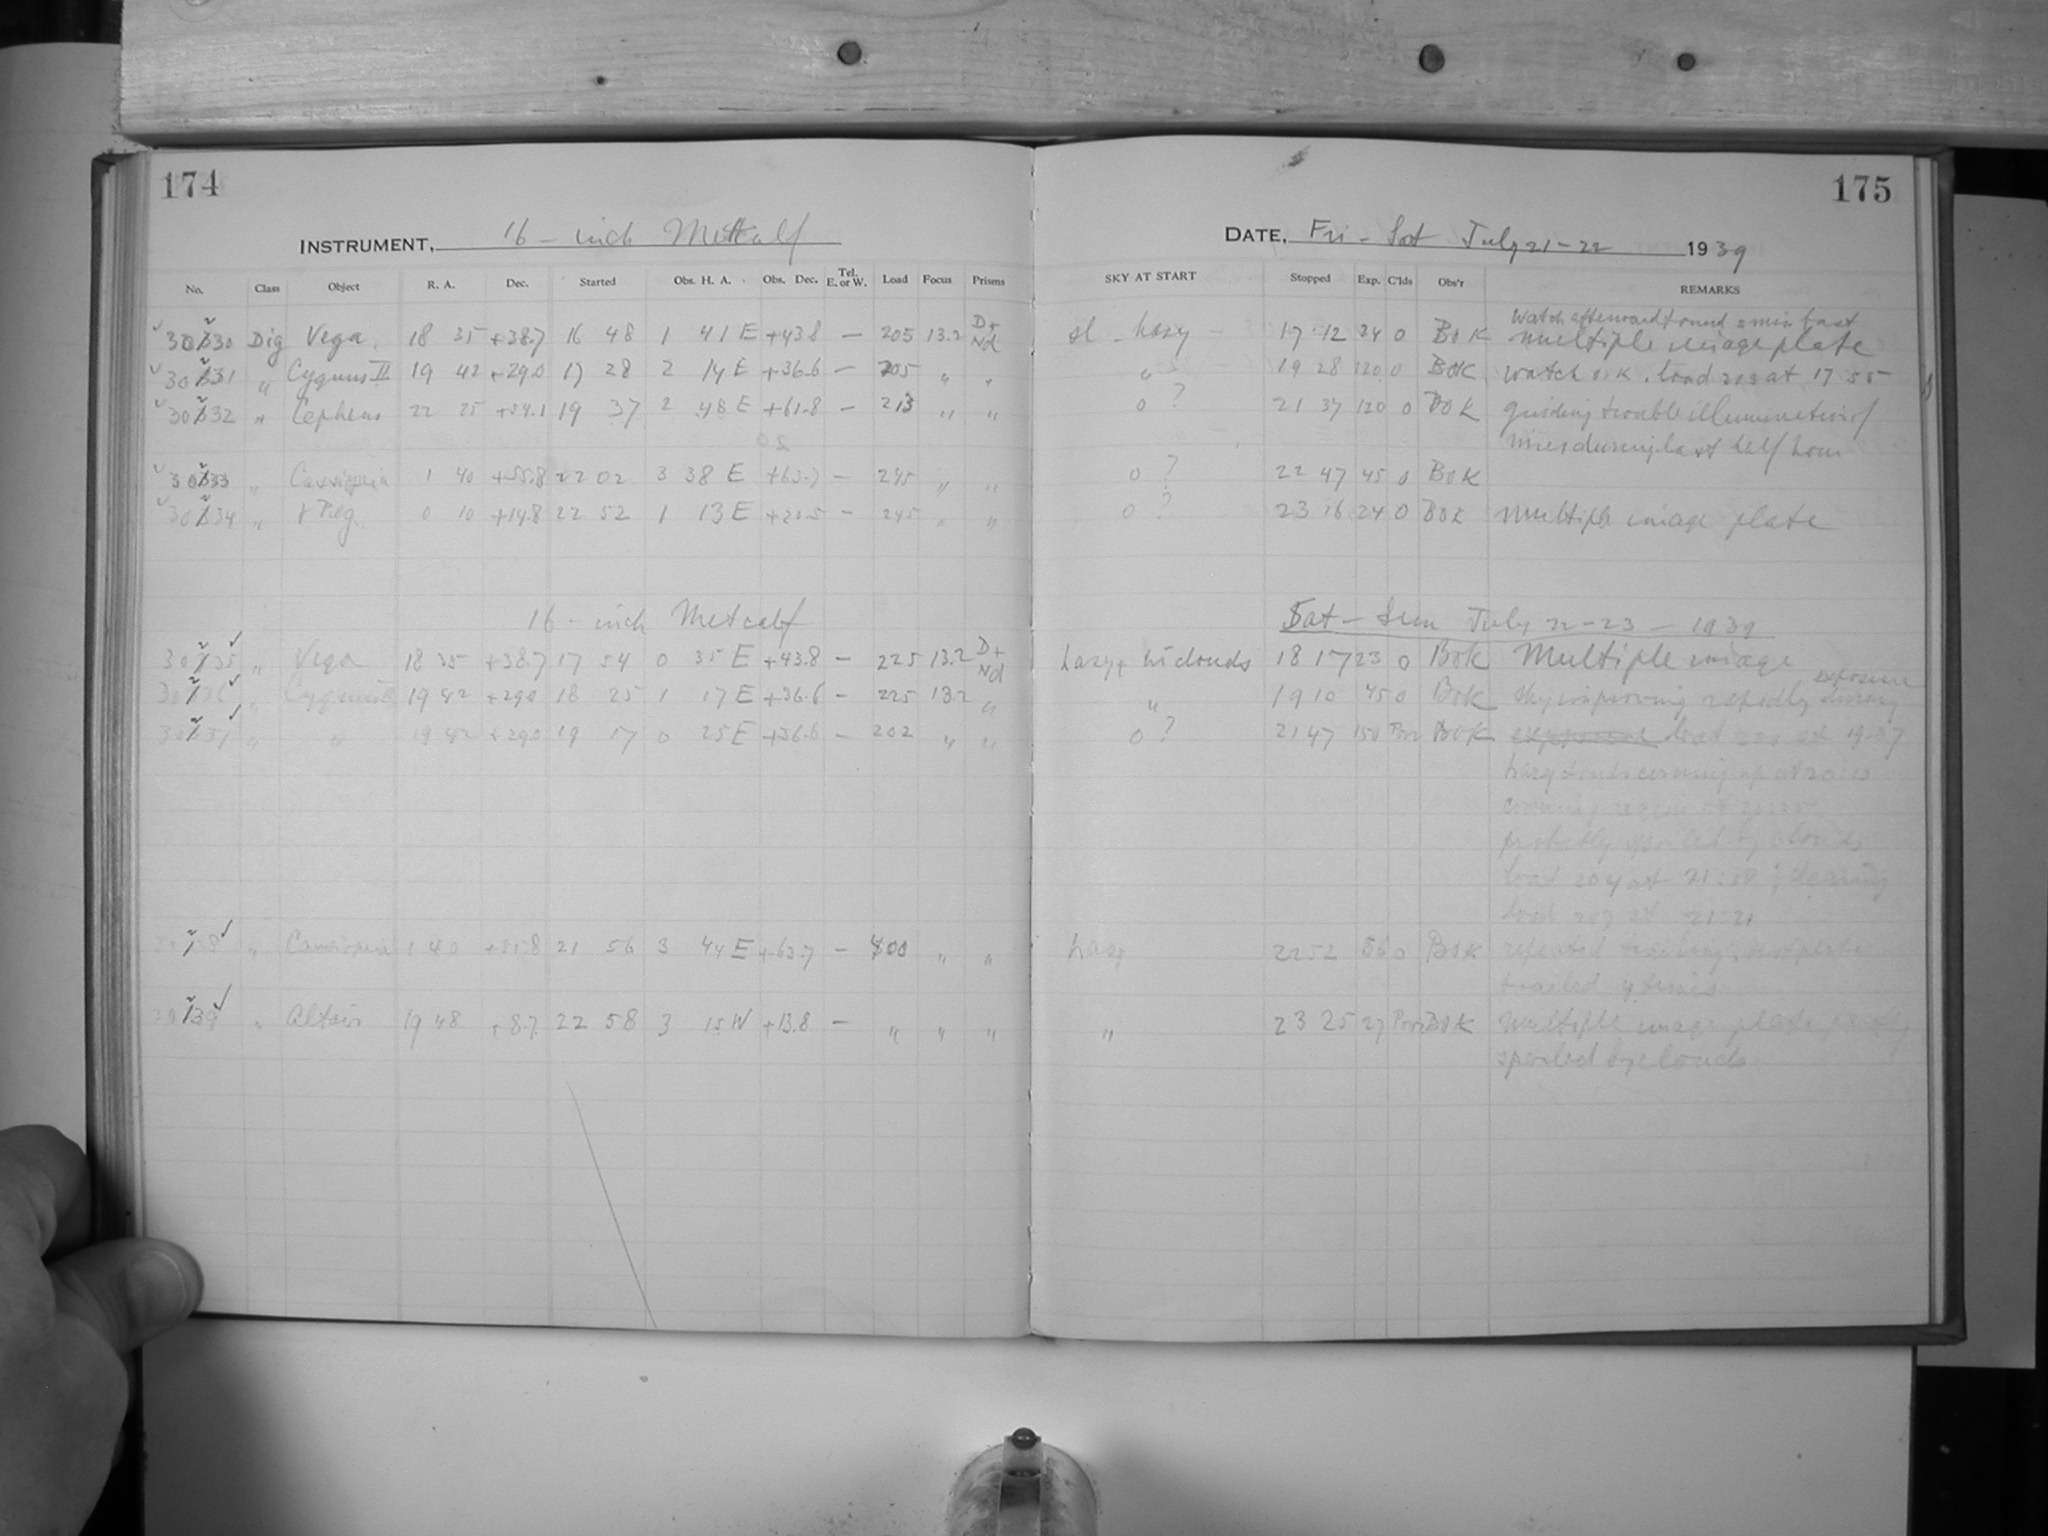 174
INSTRUMENT, 16-inch Metcalf
No. Class Object R. A. Dec. Started Obs. H. A. Obs. Dec. Tel. E. or W. Load Focus Prisms
Dig Vega. 18 35 +38.7 16 48 1 41 E +43.8 — 205 13.2 D+ Nd
" Cygnus II 19 42 +29.0 17 28 2 14 E +36.6 — 205 " "
" Cepheus 22 25 +54.1 19 37 2 48 E +61.8 — 213 " "
" Cassiopeia 1 40 +55.8 22 02 3 38 E +63.7 — 245 " "
" γ Peg. 0 10 +14.8 22 52 1 13 E +20.5 — 245 " "
16-inch Metcalf
" Vega 18 35 +38.7 17 54 0 35 E +43.8 — 225 13.2 D+ Nd
" Cygnus II 19 42 +29.0 18 25 1 17 E +36.6 — 225 13.2 "
" " 19 42 +29.0 19 17 0 25 E +36.6 — 202 " "
" Cassiopeia 1 40 +55.8 21 56 3 44 E +63.7 — 400 " "
" Altair 19 48 +8.7 22 58 3 15 W +13.8 — " " "
175
DATE, Fri - Sat July 21-22 1939
SKY AT START Stopped Exp. C'lds Obs'r REMARKS
Watch afterward found 2 min fast
sl. hazy 17 12 24 0 BOK Multiple image plate
" 19 28 120 0 BOK watch o.k. load 213 at 17 55
0 ? 21 37 120 0 BOK guiding trouble illumination of
wires during last half hour
0 ? 22 47 45 0 BOK
0 ? 23 16 24 0 BOK Multiple image plate
Sat - Sun July 22-23 - 1939
hazy + hi clouds 18 17 23 0 BOK Multiple image
" 19 10 45 0 BOK sky improving rapidly during exposure
0 ? 21 47 150 BOK load at 19 37
hazy clouds coming up at 20:10
probably spoiled by clouds
load 204 at 21:10 ; clearing
load 207 at 21:21
hazy 22 52 56 0 BOK repeated trailing, test plate
trailed 4 times
" 23 25 27 Poor BOK Multiple image plate partly
spoiled by clouds